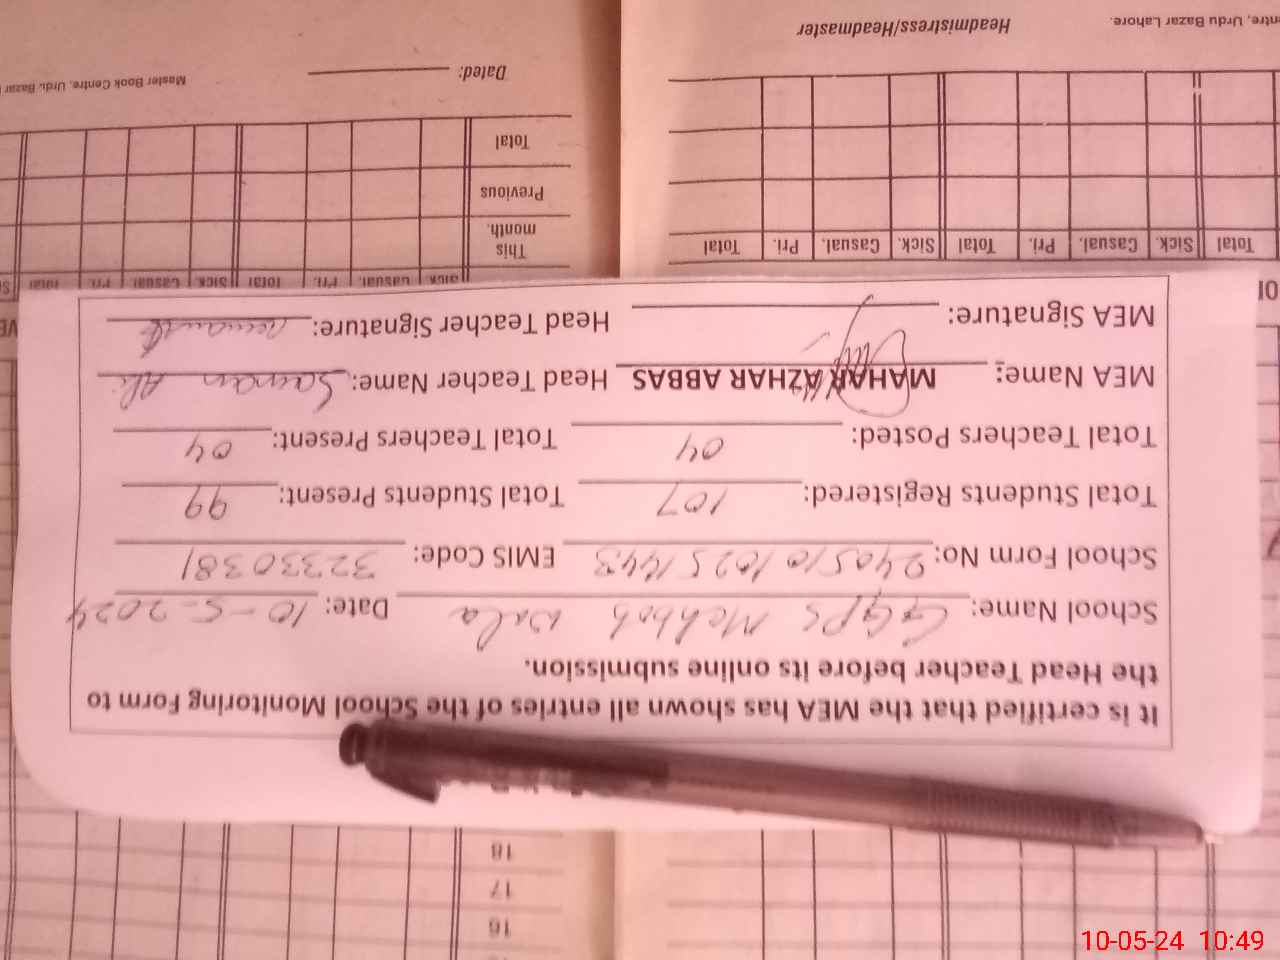 It is certified that the MEA has shown all entries of the School Monitoring Form to
the Head Teacher before its online submission.
School Name: GGPS Mehbob wala Date: 10-5-2024
School Form No: 240510 1025 1443 EMIS Code: 32330381
Total Students Registered: 107 Total Students Present: 99
Total Teachers Posted: 04 Total Teachers Present: 04
MEA Name: MAHAR AZHAR ABBAS Head Teacher Name: Ali
MEA Signature: Head Teacher Signature:
Total Sick. Casual. Pri. Total Sick. Casual. Pri. Total
Headmistress/Headmaster
ntre, Urdu Bazar Lahore.
Sick. Casual. Pri. Total Sick. Casual. Pri. Total
This
month.
Previous
Total
Dated:
Master Book Centre, Urdu Bazar
16
17
18
10-05-24 10:49